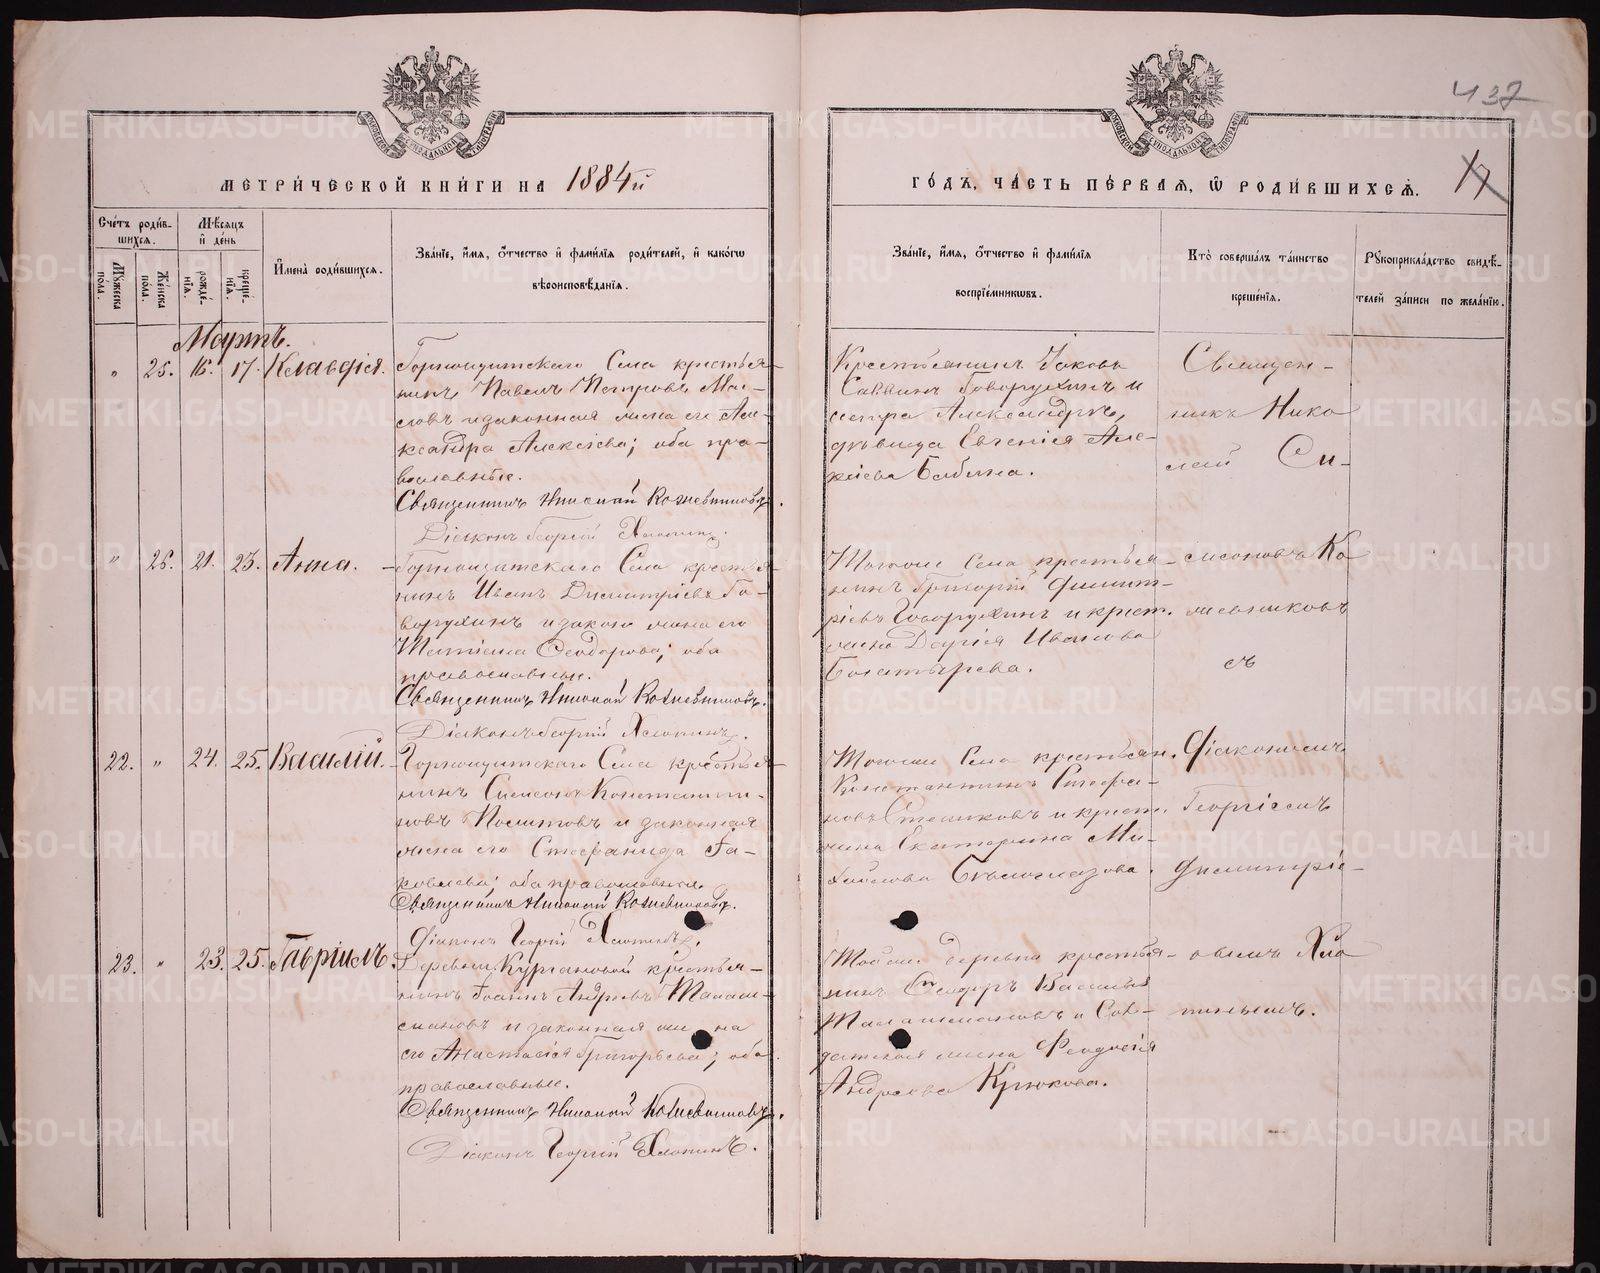 437
МЕТРИЧЕСКОЙ КНИГИ НА 1884й
ГОДЪ, ЧАСТЬ ПЕРВАЯ, Ѿ РОДИВШИХСѦ.
17
Счетъ родив-
шихся.
Мѣсяцъ
и день
Мужеска
пола.
Женска
пола.
рожде-
нія.
креще-
нія.
Имена родившихся.
Званіе, имя, отчество и фамилія родителей, и какогѡ
вѣроисповѣданія.
Званіе, имя, отчество и фамилія
воспріемникѡвъ.
Кто совершалъ таинство
крещенія.
Рукоприкладство свидѣ-
телей записи по желанію.
Мартъ.
" 25. 16. 17. Клавдія.
Горнощитскаго Села крестья-
нинъ Павелъ Петровъ Мас-
ловъ и законная жена его Але-
ксандра Алексіева; оба пра-
вославные.
Священникъ Николай Кожевниковъ.
Діаконъ Георгій Хлопинъ.
Крестьянинъ Іаковъ
Саввинъ Говорухинъ и
сестра Александры,
дѣвица Евгенія Але-
ксіева Бабина.
Священ-
никъ Нико
лай Си-
" 26. 21. 23. Анна.
Горнощитскаго Села крестья-
нинъ Иванъ Димитріевъ Го-
ворухинъ и закон. жена его
Татіана Ѳеодорова; оба
православные.
Священникъ Николай Кожевниковъ.
Діаконъ Георгій Хлопинъ.
Тогоже Села крестья-
нинъ Григорій Димит-
ріевъ Говорухинъ и крест.
жена Дарія Иванова
Богатырева.
мсоновъ Ко
жевниковъ
съ
22. " 24. 25. Василій.
Горнощитскаго Села крестья-
нинъ Симеонъ Константи-
новъ и законная
жена его Стефанида Іа-
ковлева; оба православные.
Священникъ Николай Кожевниковъ.
Діаконъ Георгій Хлопинъ.
Тогоже Села крестьян.
Константинъ
и крест.
жена Екатерина Ми-
хайлова Бѣлоглазова.
Діакономъ
Георгіемъ
Димитріе-
23. " 23. 25. Гавріилъ.
Деревни Кургановой крестья-
нинъ Іоаннъ Андреевъ Талаш-
мановъ и законная жена
его Анастасія Григорьева; оба
православные.
Священникъ Николай Кожевниковъ.
Діаконъ Георгій Хлопинъ.
Тойже деревни крестья-
нинъ Ѳеодоръ Васильев
Талашмановъ и Сол-
датская жена Ѳеодосія
Андреева Крюкова.
вымъ Хло
пинымъ.
METRIKI.GASO-URAL.RU